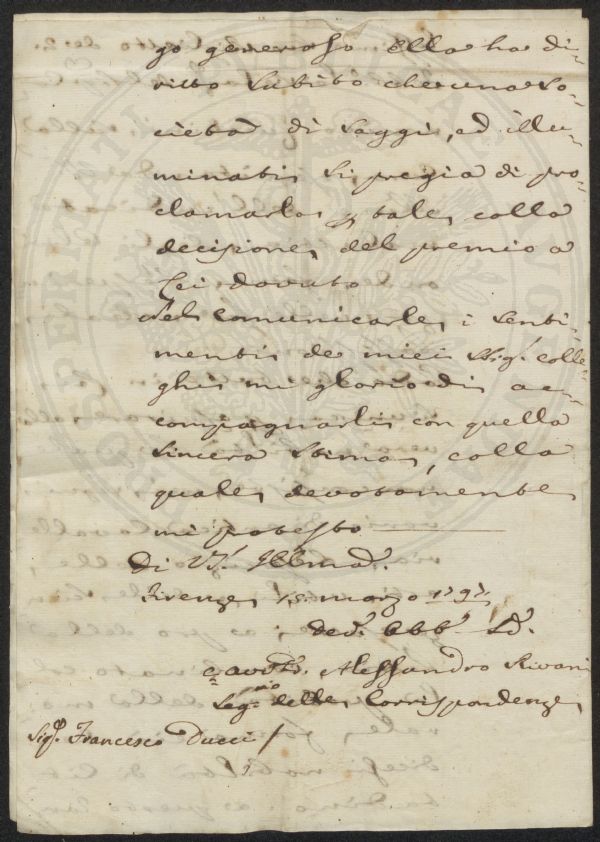 go generoso Ella ha di-
ritto subito che una so-
cietà di saggi, ed illu-
minati si pregia di pro-
clamarlo p tale colla
decisione del premio a
Lei dovuto
Nel comunicarle i senti-
menti de miei Sigi. colle-
ghi mi glorio di ac-
compagnarli con quella
sincera stima, colla
quale devotamente
mi protesto
Di VS. Illma.
Firenze 15 marzo 1797
Dev. Obb. S.
Alessandro Rivani
Seg.rio delle Corrispondenze
Sig. Francesco Ducci